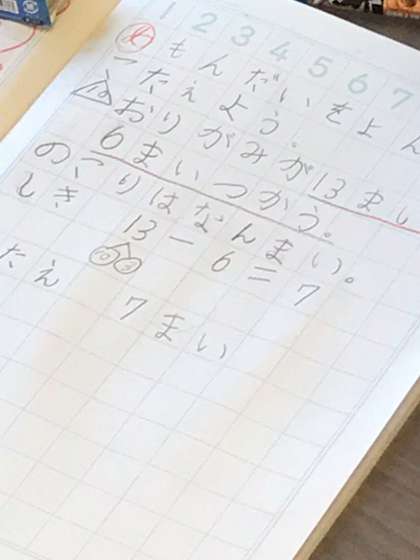 1 2 3 4 5 6 7
め もんだいをよん
ったえよう。
おりがみが13まい
6まいつかう。
のこりはなんまい。
しき 13-6=7
10 3
たえ 7まい